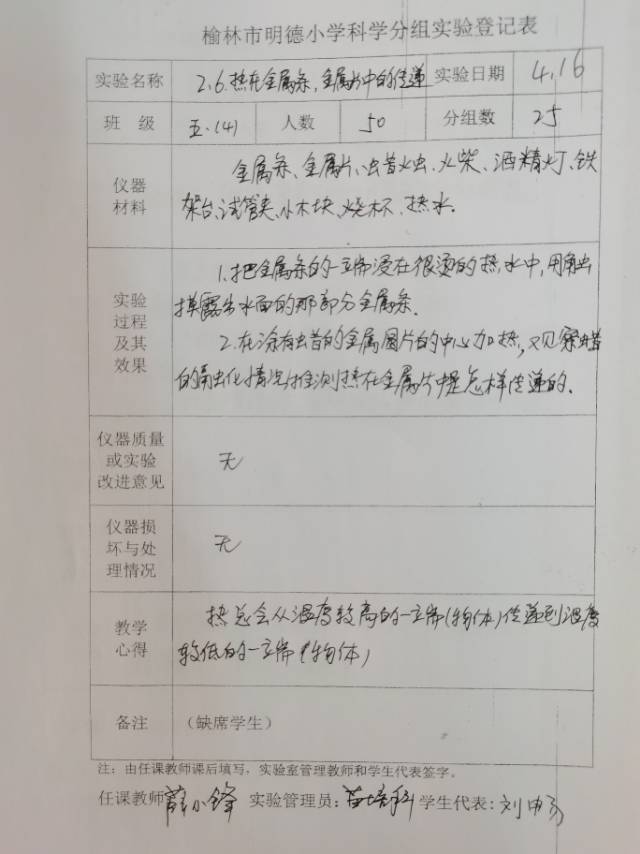 榆林市明德小学科学分组实验登记表
实验名称 2.6.热在金属条,金属片中的传递 实验日期 4.16
班 级 五.(4) 人数 50 分组数 25
仪器
材料
金属条、金属片、蜡烛、火柴、酒精灯、铁
架台、试管夹、小木块、烧杯、热水.
实验
过程
及其
效果
1.把金属条的一端浸在很烫的热水中,用手触
摸露出水面的那部分金属条.
2.在涂有蜡的金属圆片的中心加热,观察蜡
的融化情况,推测热在金属片中是怎样传递的.
仪器质量
或实验
改进意见
无
仪器损
坏与处
理情况
无
教学
心得
热总会从温度较高的一端(物体)传递到温度
较低的一端(物体)
备注 (缺席学生)
注:由任课教师课后填写,实验室管理教师和学生代表签字。
任课教师 薛小锋 实验管理员: 苗培科 学生代表: 刘